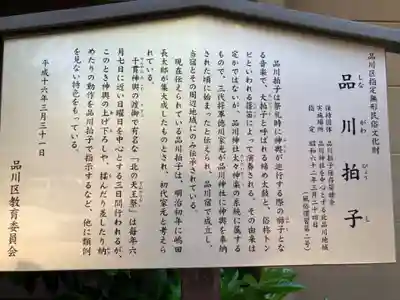 品川区指定無形民俗文化財
品川拍子
しながわびょうし
保持団体 品川拍子保存睦連合
実施場所 品川神社を中心とする北品川地域
指定 昭和六十二年三月二十四日
(風俗慣習第二号)
品川拍子は祭礼時に神輿が巡行する際の囃子とな
る音楽で、大拍子と呼ばれる締め太鼓と、俗称トン
ビといわれる篠笛によって演奏される。その由来は
定かではないが、品川神社太々神楽の系統に属する
もので、三代将軍徳川家光が品川神社に神輿を奉納
された頃に始まったと伝えられ、品川宿で成立し、
当宿とその周辺地域にのみ伝承されている。
現在伝えられている品川拍子は、明治初年に嶋田
長太郎が集大成したものとされ、初代家元と考えら
れている。
千貫神輿の渡御で有名な「北の天王祭」は毎年六
月七日に近い日曜日を中心とする三日間行われるが、
このとき神輿の上げ下ろしや、揉んだり差したり納
めたりの動作を品川拍子で指示するなど、他に類例
を見ない特色をもっている。
平成十六年三月三十一日
品川区教育委員会